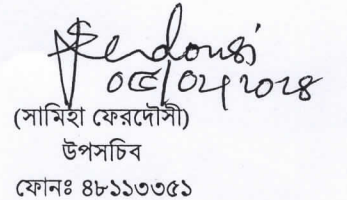 Ferdousi
০৫/০২/২০২৪
(সামিহা ফেরদৌসী)
উপসচিব
ফোনঃ ৪৮১১৩৩৫১